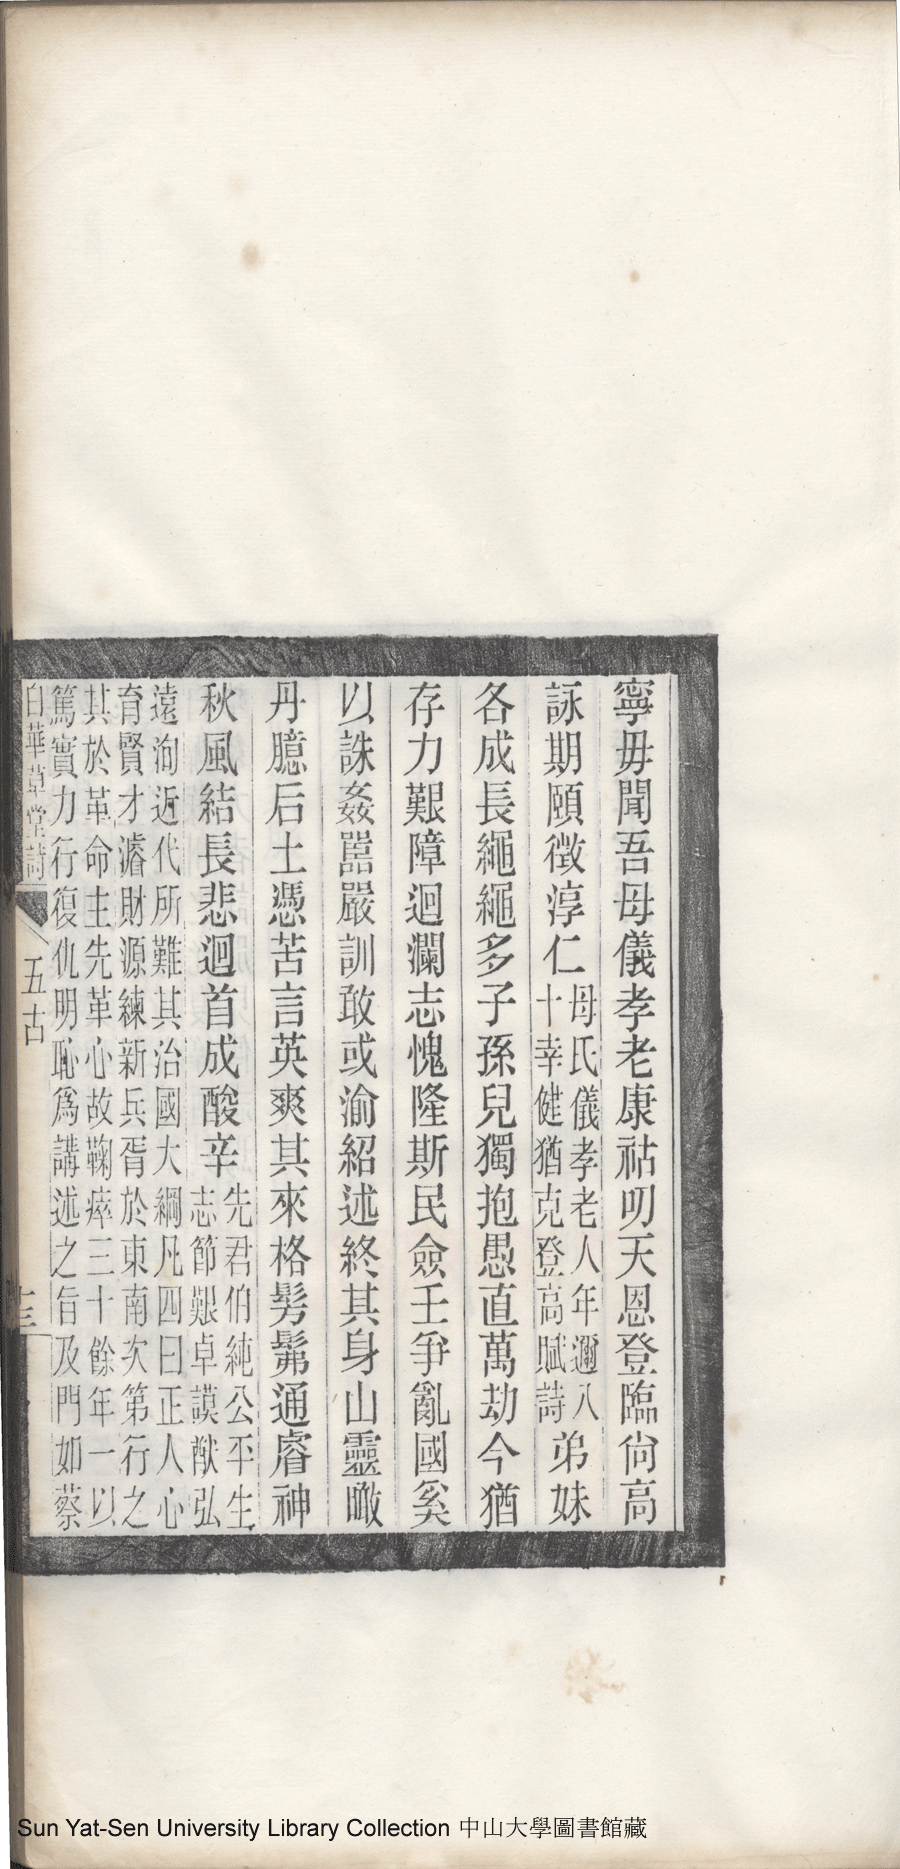 寧毋聞吾母儀孝老康祜叨天恩登臨尙高
詠期頤徵淳仁母氏儀孝老人年邇八十幸健猶克登高賦詩弟妹
各成長繩繩多子孫兒獨抱愚直萬劫今猶
存力艱障迴瀾志愧隆斯民僉壬爭亂國奚
以誅姦嚚嚴訓敢或渝紹述終其身山靈瞰
丹臆后土憑苦言英爽其來格髣髴通睿神
秋風結長悲迴首成酸辛先君伯純公平生志節艱卓謨猷弘
遠洵近代所難其治國大綱凡四曰正人心
育賢才濬財源練新兵胥於東南次第行之
其於革命主先革心故鞠瘁三十餘年一以
篤實力行復仇明恥爲講述之旨及門如蔡
白華草堂詩 五古 十三
Sun Yat-Sen University Library Collection 中山大學圖書館藏